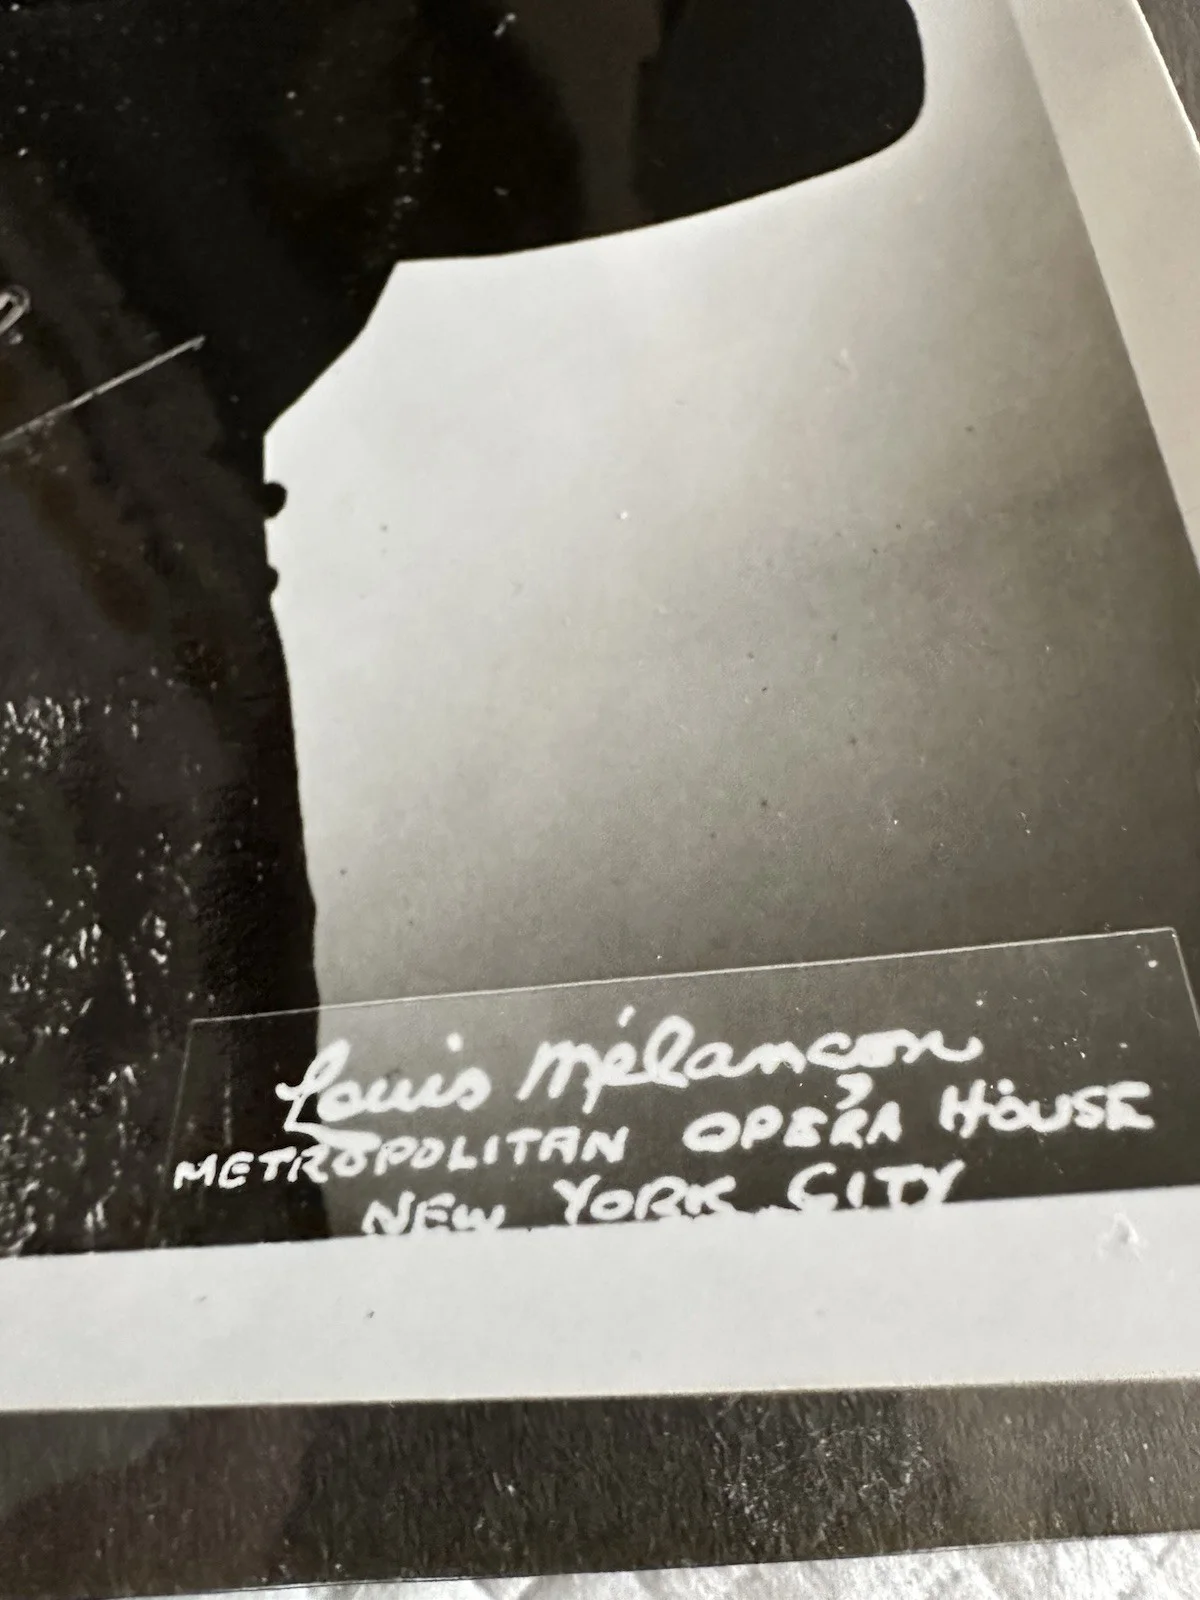 Louis Mélançon
METROPOLITAN OPERA HOUSE
NEW YORK CITY